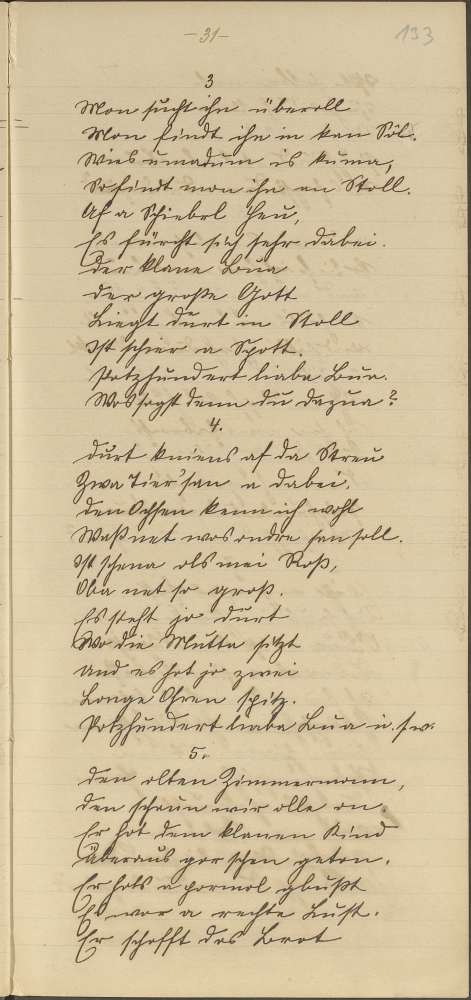 -31-
133
3
Mon sucht ihn überoll
Mon findt ihn in kan Sol.
Wies umadum is kuma,
So findt mon ihn an Stoll.
Af a Schieberl Heu,
Es fürcht sich sehr dabei.
Der klane Bua
Der große Gott
Liegt durt in Stoll
Ist schier a Spott.
Potzhundert liaba Bua.
Wos sogst denn du dazua?
4.
Durt kniens af da Streu
Zwa Tier' san a dabei.
Den Ochsen kenn ich wohl
Waß net wos ondre san soll.
Ist schena ols mei Roß,
Oba net so groß.
Es steht jo durt
Wo die Mutta sitzt
Und es hot jo zwei
Longe Ohren spitz.
Potzhundert liaba Bua u. s. w.
5.
Den olten Zimmermonn,
Den schaun wir olle on.
Er hot dem klanen Kind
Überaus gor schen geton.
Er hots a pormol gbußt
Es wor a rechte Lust.
Er schofft das Brot